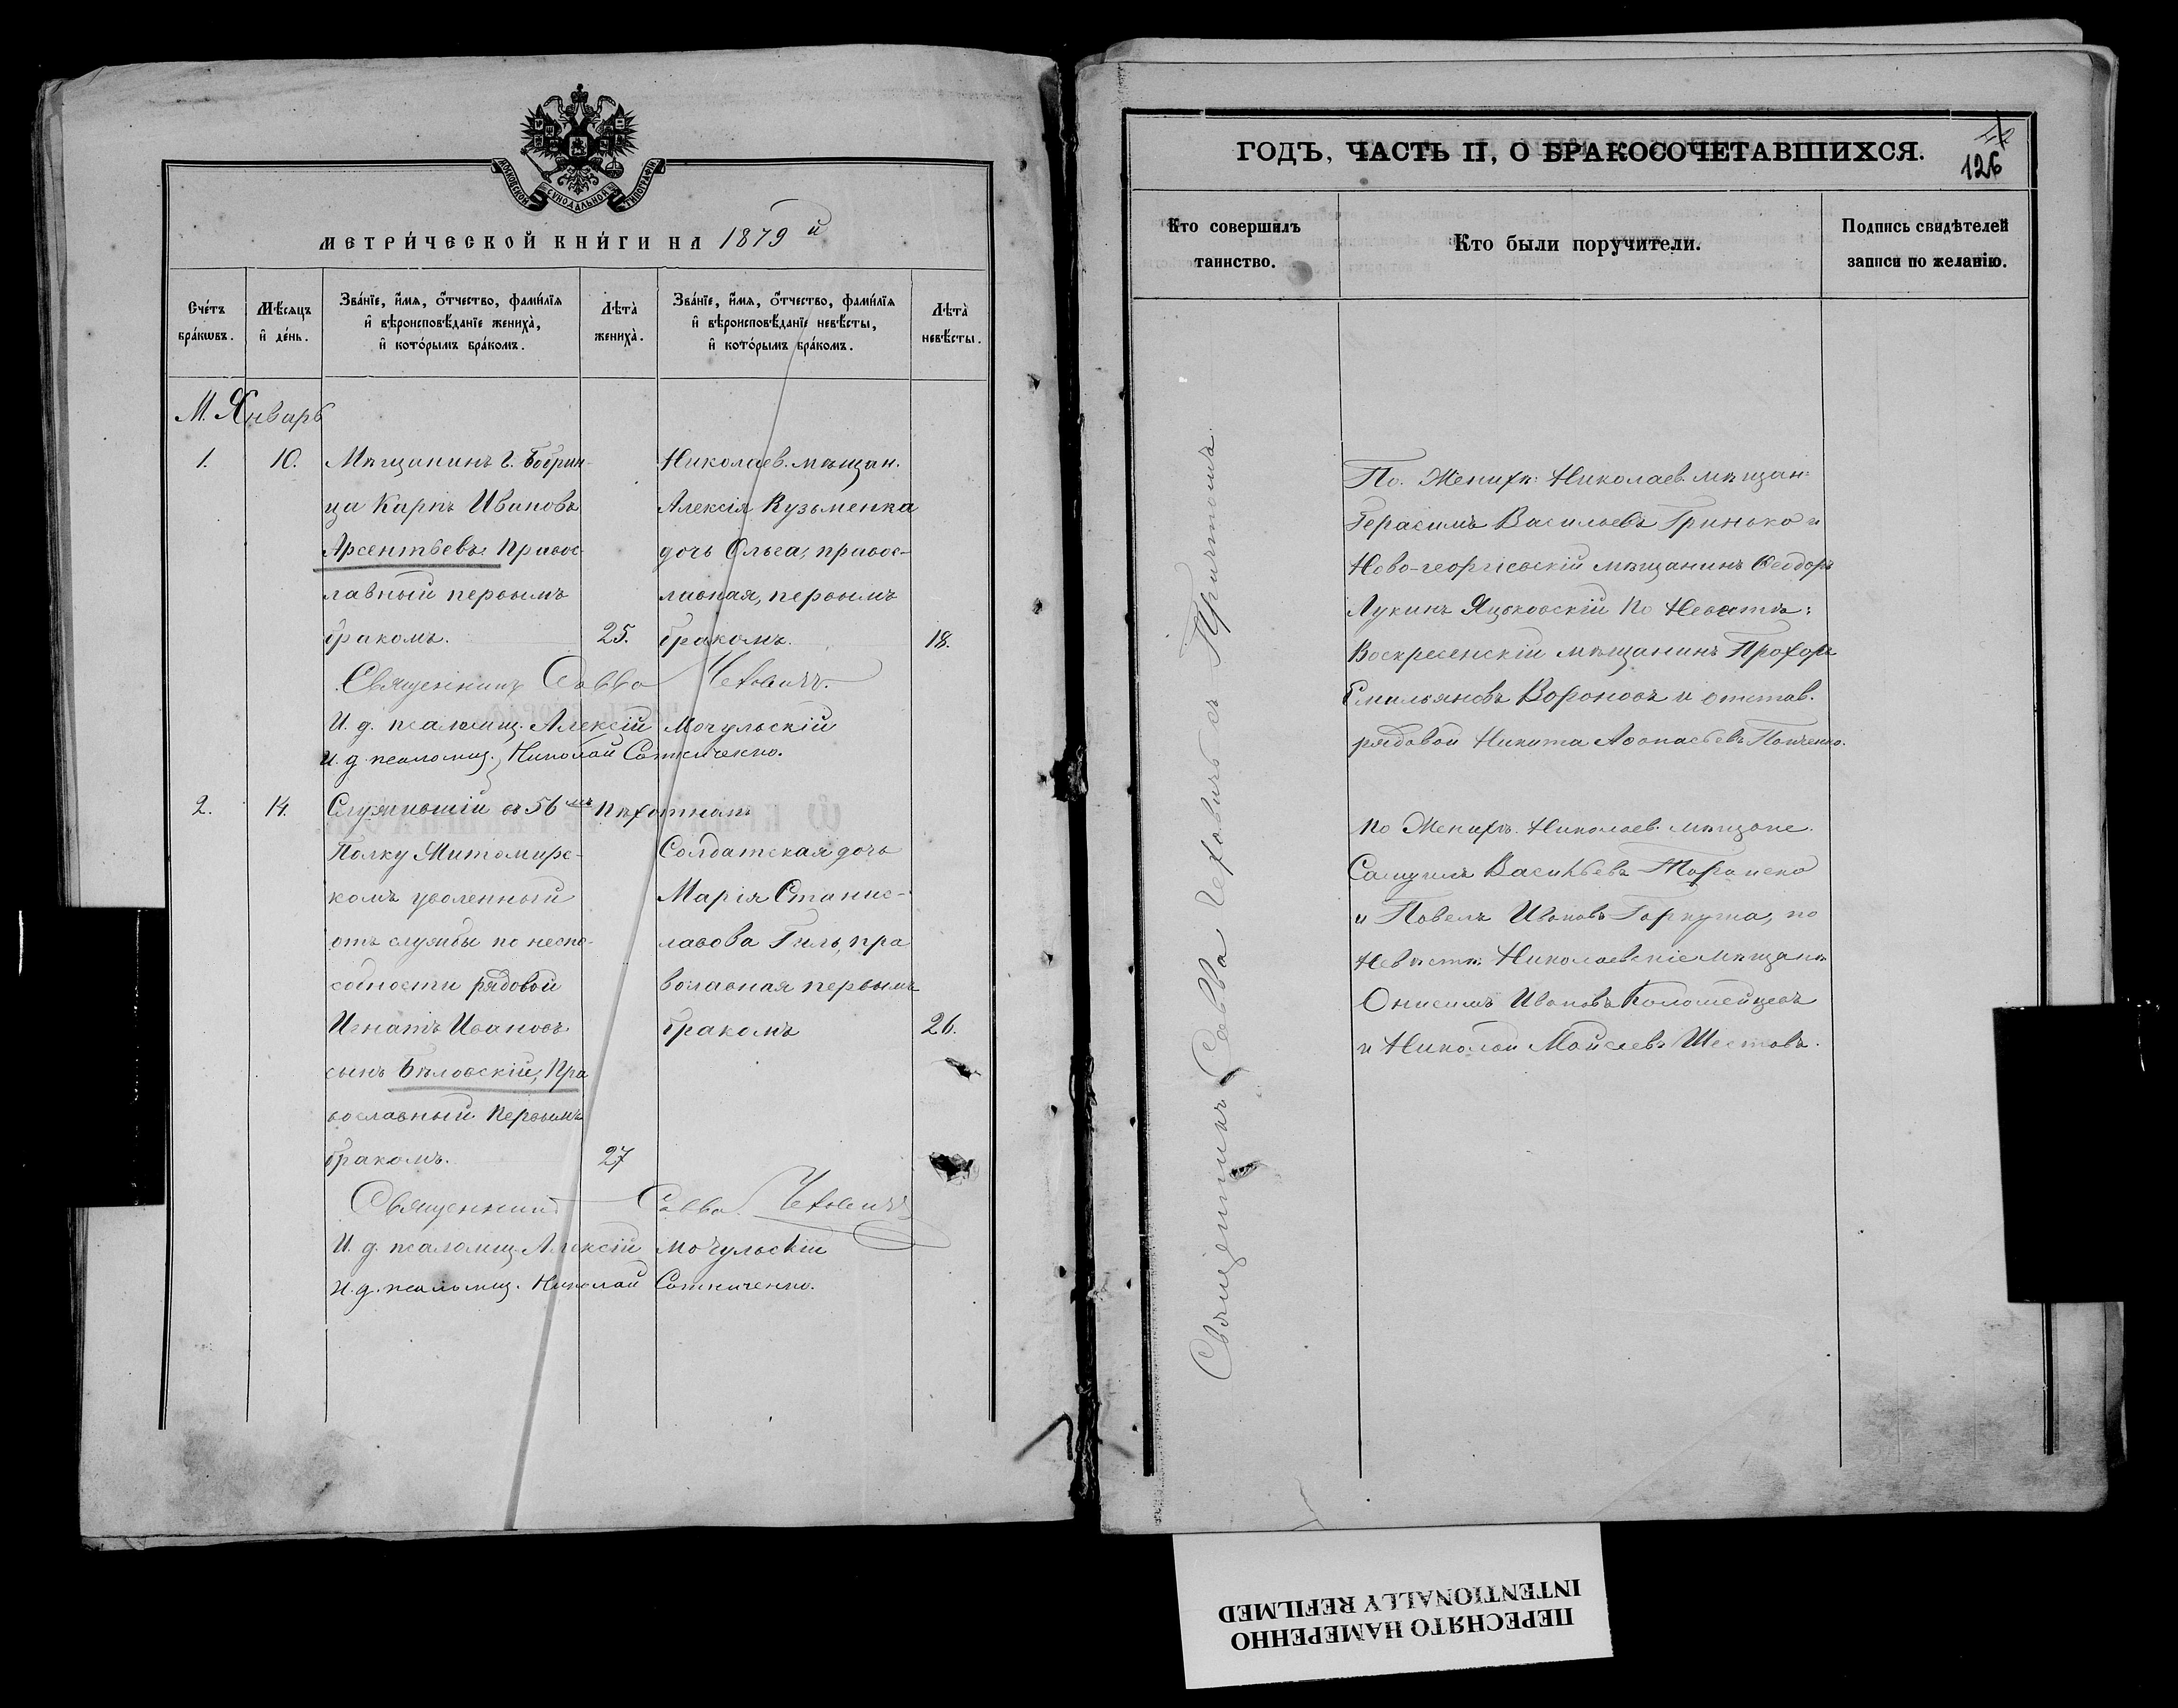 МОСКОВСКОЙ СѴНОДАЛЬНОЙ ТИПОГРАФІИ
МЕТРИЧЕСКОЙ КНИГИ НА 1879й
Счетъ браковъ.
Мѣсяцъ и день.
Званіе, имя, отчество, фамилія и вѣроисповѣданіе жениха, и которымъ бракомъ.
Лѣта жениха.
Званіе, имя, отчество, фамилія и вѣроисповѣданіе невѣсты, и которымъ бракомъ.
Лѣта невѣсты.
М. Январь
1.
10.
Мѣщанинъ г. Бобрин-
ца Карпъ Ивановъ
Арсентьевъ. Правос-
лавный первымъ
бракомъ.
25.
Николаев. мѣщан.
Алексія Кузьменка
дочь Ольга, правос-
лавная, первымъ
бракомъ.
18.
Священникъ Савва Чехович.
И. д. псаломщ. Алексій Мочульскій
И. д. псаломщ. Николай Сотниченко.
2.
14.
Служившій въ 56мъ Пѣхотномъ
Полку Житомирс-
комъ уволенный
отъ службы по неспо-
собности рядовой
Игнатъ Ивановъ
сынъ Бѣловскій, Пра
вославный Первымъ
бракомъ.
27
Солдатская дочь
Марія Станис-
лавова Гиль, пра
вославная первымъ
бракомъ
26.
Священник Савва Чехович
И. д. псаломщ. Алексій Мочульскій
И. д. псаломщ. Николай Сотниченко.
ГОДЪ, ЧАСТЬ II, О БРАКОСОЧЕТАВШИХСЯ.
126
Кто совершилъ таинство.
Кто были поручители.
Подпись свидѣтелей записи по желанію.
Священникъ Савва Чеховичъ съ Причтомъ.
По Женихѣ: Николаев. мѣщан:
Герасимъ Васильевъ Гринько и
Ново-георгіевскій мѣщанинъ Ѳеодоръ
Лукинъ Яцьковскій по Невѣстѣ:
Воскресенскій мѣщанинъ Прохоръ
Емильяновъ Вороновъ и отстав.
рядовой Никита Аѳонасьевъ
по Женихѣ. Николаев. мѣщане.
Самуилъ Васильевъ
и Павелъ Ивановъ Гаркуша, по
Невѣстѣ: Николаевскіе мѣщане
Онисимъ Ивановъ Коломейцевъ
и Николай Мойсеевъ Шестовъ.
ПЕРЕСНЯТО НАМЕРЕННО
INTENTIONALLY REFILMED